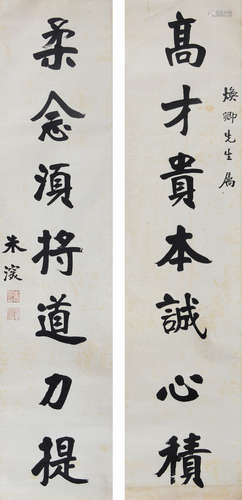 煥卿先生屬
高才貴本誠心積
柔念須將道力提
朱瀁